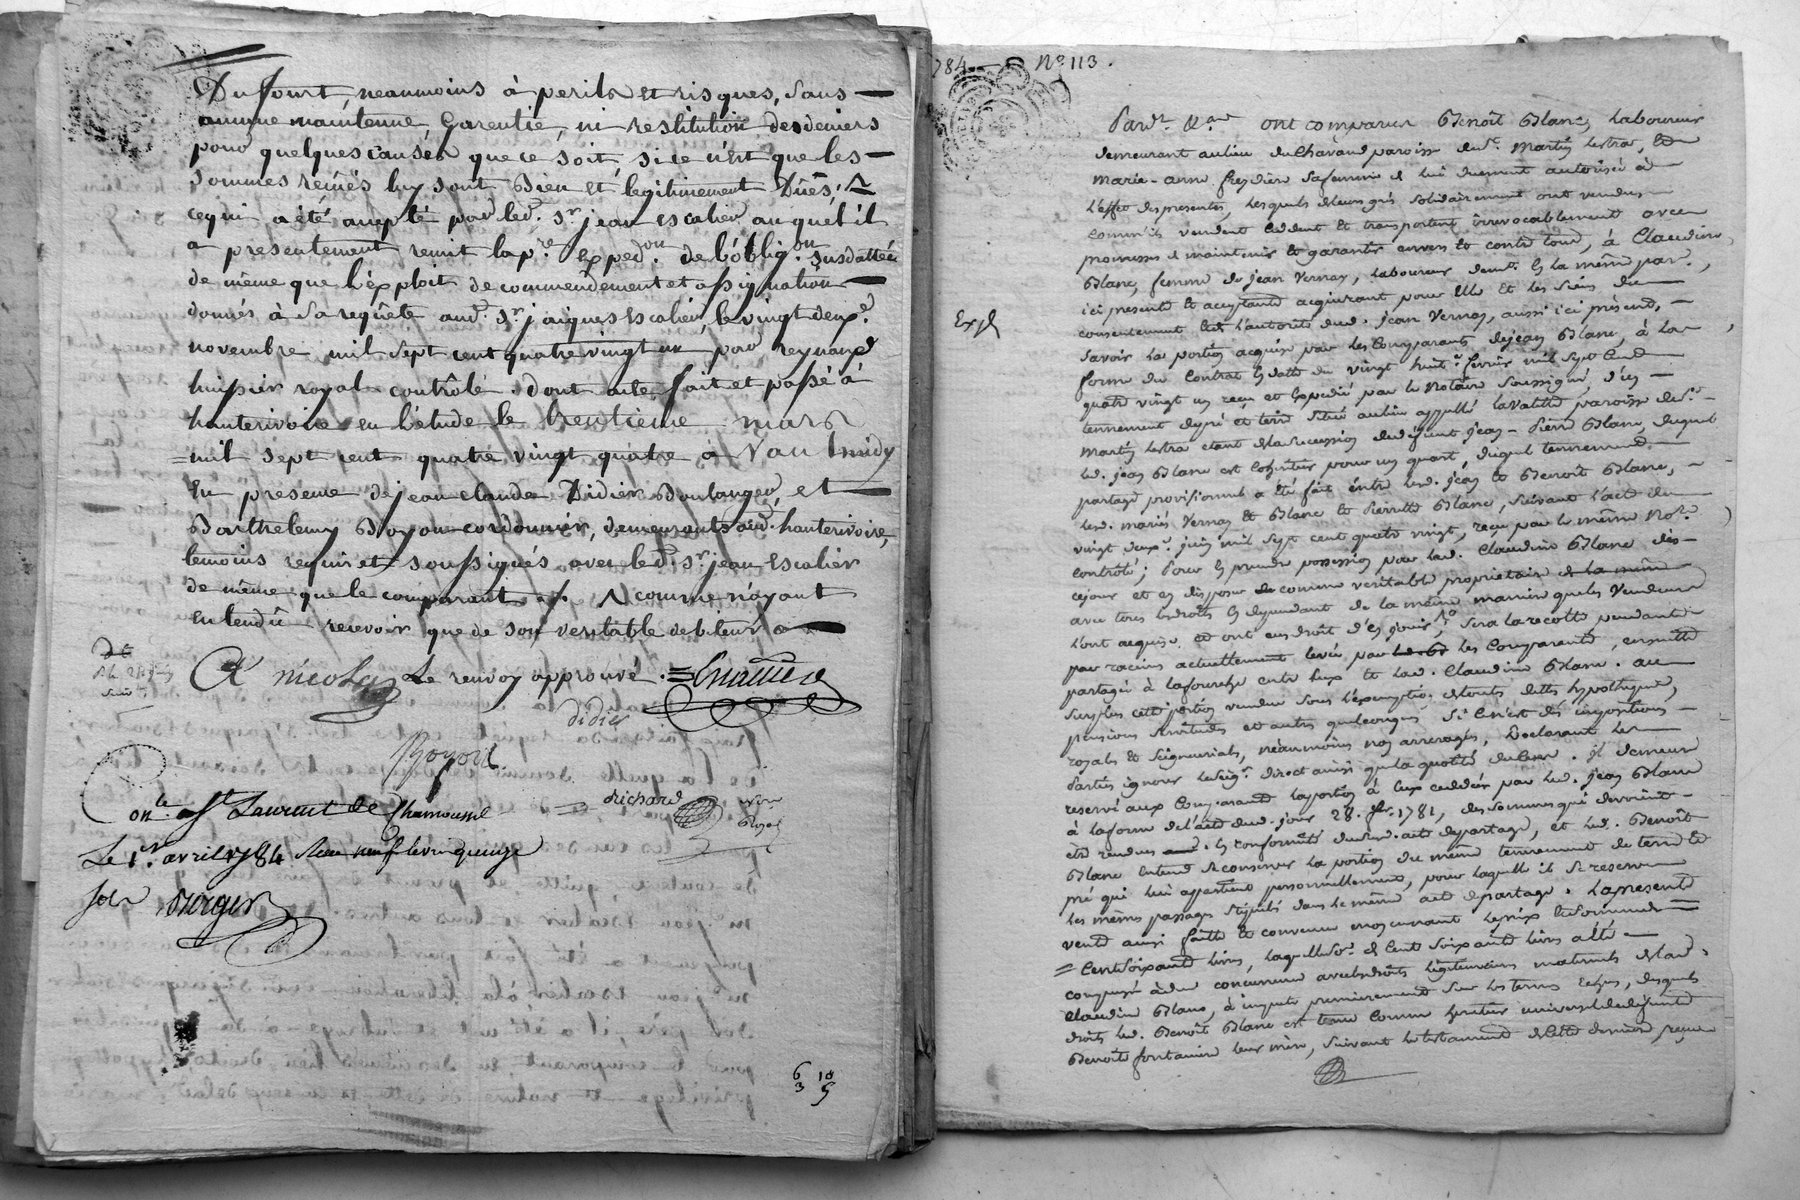 Du sourt, neanmoins à perils et risques, sans
aucune maintenue, Garentie, ni restitution des deniers
pour quelques causes que ce soit si ce n'est que les
sommes reüés luy sont Bien et legitimement Düés,
ce qui a été accepté par led. Sr. jean escalier au quel il
a presentement remit la pre. exped.on de l'oblig.on susdattée
de même que l'éxploit de commendement et assignation
donnés à sa requête aud. Sr. jacques escalier, le vingt deuxe.
novembre mil sept cent quatre vingt un par reynaud
huissier royal contrôlé. dont acte, fait et passé à
hauterivoire en l'étude le trentieme mars
mil sept cent quatre vingt quatre avant midy
En presence de jean claude Didier Boulanger, et
Barthelemy Boyon cordonnier, demeurants aud. hauterivoire,
temoins requis et soussignés avec led. Sr. jean escalier
de même que le comparant comme n'ayant
entendû recevoir que de son veritable debiteur
Le renvoy approuvé.
didier
Boyon
Conle. a St. Laurent de Chamousset
Le 1er. avril 1784 Reçu neuf livres quinze
sols
Berger
richard
Nore
Royal
6 10
3 5
784 N° 113.
Pard. ont comparus Benoît Blanc, Laboureur
demeurant au lieu du Chavand paroisse de St. Martin Lestra, et
Marie-anne sa femme de lui duement autorisée à
L'effet des presentes, Lesquels de leurs grés solidairement ont vendus
comm'ils vendent cedent et transportent irrevocablement avec
promesses de maintenir et garantir envers et contre tous, à Claudine
Blanc, femme de jean Vernay, Laboureur demt. en la même par.
ici presente et acceptante acquerant pour Elle et les siens du
consentement et de l'autorité dud. jean Vernay, aussi ici présent,
Exp.
savoir la portion acquise par les Comparants de jean Blanc, à la
forme du Contrat en datte du vingt huit fevrier mil sept Cent
quatre vingt un reçu et Expedié par le Notaire soussigné, d'un
tennement de pré et terre situé au lieu appellé Lavalette paroisse de St.
Martin Lestra étant de la succession de défunt jean-Pierre Blanc, duquel
led. jean Blanc est cohéritier pour un quart, duquel tennement
partage provisionnel a été fait entre led. jean et Benoît Blanc,
Lesd. mariés Vernay et Blanc et Pierrette Blanc, suivant l'acte du
vingt deuxe. juin mil sept cent quatre vingt, reçu par le même Nore.
contrôlé; Pour en prendre possession par lad. Claudine Blanc dès
cejour et en disposer comme veritable proprietaire de la même
avec tous les droits en dependant de la même maniere que les Vendeurs
L'ont acquise et ont eu droit d'en jouir, sera la recolte pendante
par racines actuellement levée par les Comparants, ensuitte
partagée à la fourche entre Eux et lad. Claudine Blanc. au
surplus cette portion vendue sous l'exemption de toutes dettes hypotheques,
pensions servitudes et autres quelconques si ce n'est des impositions
royales et seigneuriales, néanmoins non arreragés, Declarant les
Parties ignorer le seigr. direct ainsi que la quotité du Cens. Il demeure
reservé aux Comparants la portion à eux cedée par led. jean Blanc
à la forme de l'acte dud. jour 28. fer. 1781, des sommes qui devroient
etre rendues en conformité dud. acte de partage, et led. Benoît
Blanc entend se conserver la portion du même tennement de terre et
pré qui lui appartient personnellement, pour laquelle il se reserve
les mêmes passages stipulés dans le même acte de partage. La presente
vente ainsi faitte et convenue moyennant le prix et somme de
Cent soixante livres, laquelle so. de Cent soixante livres a été
compensée à due concurrence avec les droits légitimaires maternels de lad.
Claudine Blanc, à imputer premierement sur les termes Echus, desquels
droits led. Benoît Blanc est tenu comme heritier universel de défunte
Benoîte fontaine leur mère, suivant le testament de cette dernière reçu